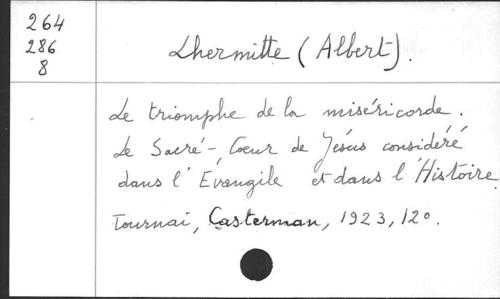 264
286
8
Lhermitte (Albert).
Le triomphe de la miséricorde.
Le Sacré-Coeur de Jésus considéré
dans l'Evangile et dans l'Histoire
Tournai, Casterman, 1923, 12°.